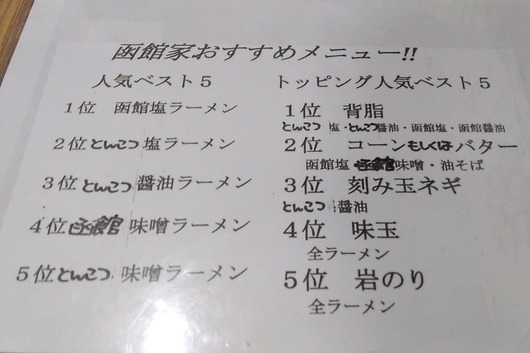 函館家おすすめメニュー!!
人気ベスト5
1位 函館塩ラーメン
2位 とんこつ 塩ラーメン
3位 とんこつ 醤油ラーメン
4位 函館 味噌ラーメン
5位 とんこつ 味噌ラーメン
トッピング人気ベスト5
1位 背脂
とんこつ 塩・とんこつ醤油・函館塩・函館醤油
2位 コーンもしくはバター
函館塩 函館味噌・油そば
3位 刻み玉ネギ
とんこつ 醤油
4位 味玉
全ラーメン
5位 岩のり
全ラーメン